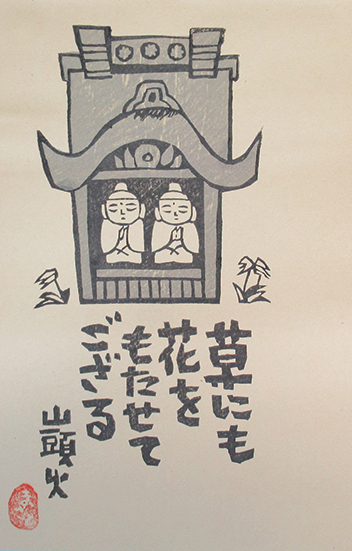 草にも
花を
もたせて
ござる
山頭火